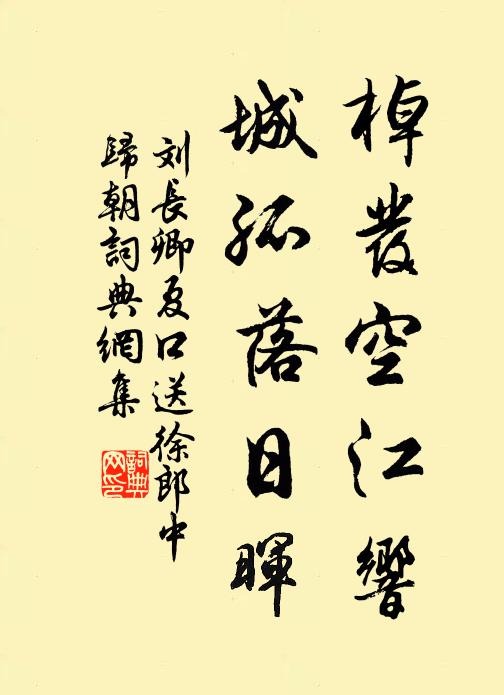 棹發空江響
城孤落日暉
刘長卿夏口送徐郎中
歸朝詞典網集
詞典网印